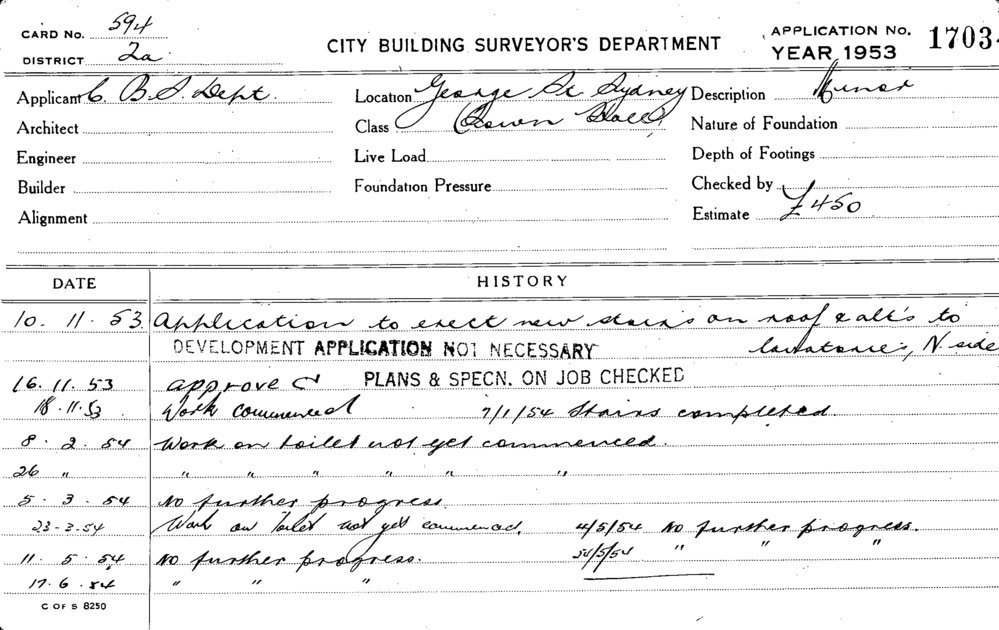 CARD No. 594
DISTRICT 2a
CITY BUILDING SURVEYOR'S DEPARTMENT
APPLICATION No. 1703
YEAR 1953
Applicant C. B. S. Dept.
Location George St Sydney
Description Minor
Architect
Class (Town Hall)
Nature of Foundation
Engineer
Live Load
Depth of Footings
Builder
Foundation Pressure
Checked by
Alignment
Estimate £450
DATE
HISTORY
10. 11. 53. Application to erect new stairs on roof & alt's to
lavatories, N. side
DEVELOPMENT APPLICATION NOT NECESSARY
16. 11. 53 approved PLANS & SPECN. ON JOB CHECKED
18. 11. 53 Work commenced 7/1/54 Stairs completed.
8. 2. 54 Work on toilet not yet commenced.
26 " " " " " " "
5. 3. 54 No further progress.
23-3-54 Work on Toilet not yet commenced. 4/5/54 No further progress.
11. 5. 54 No further progress. /5/54 " " "
17. 6. 54 " " "
C OF S 8250